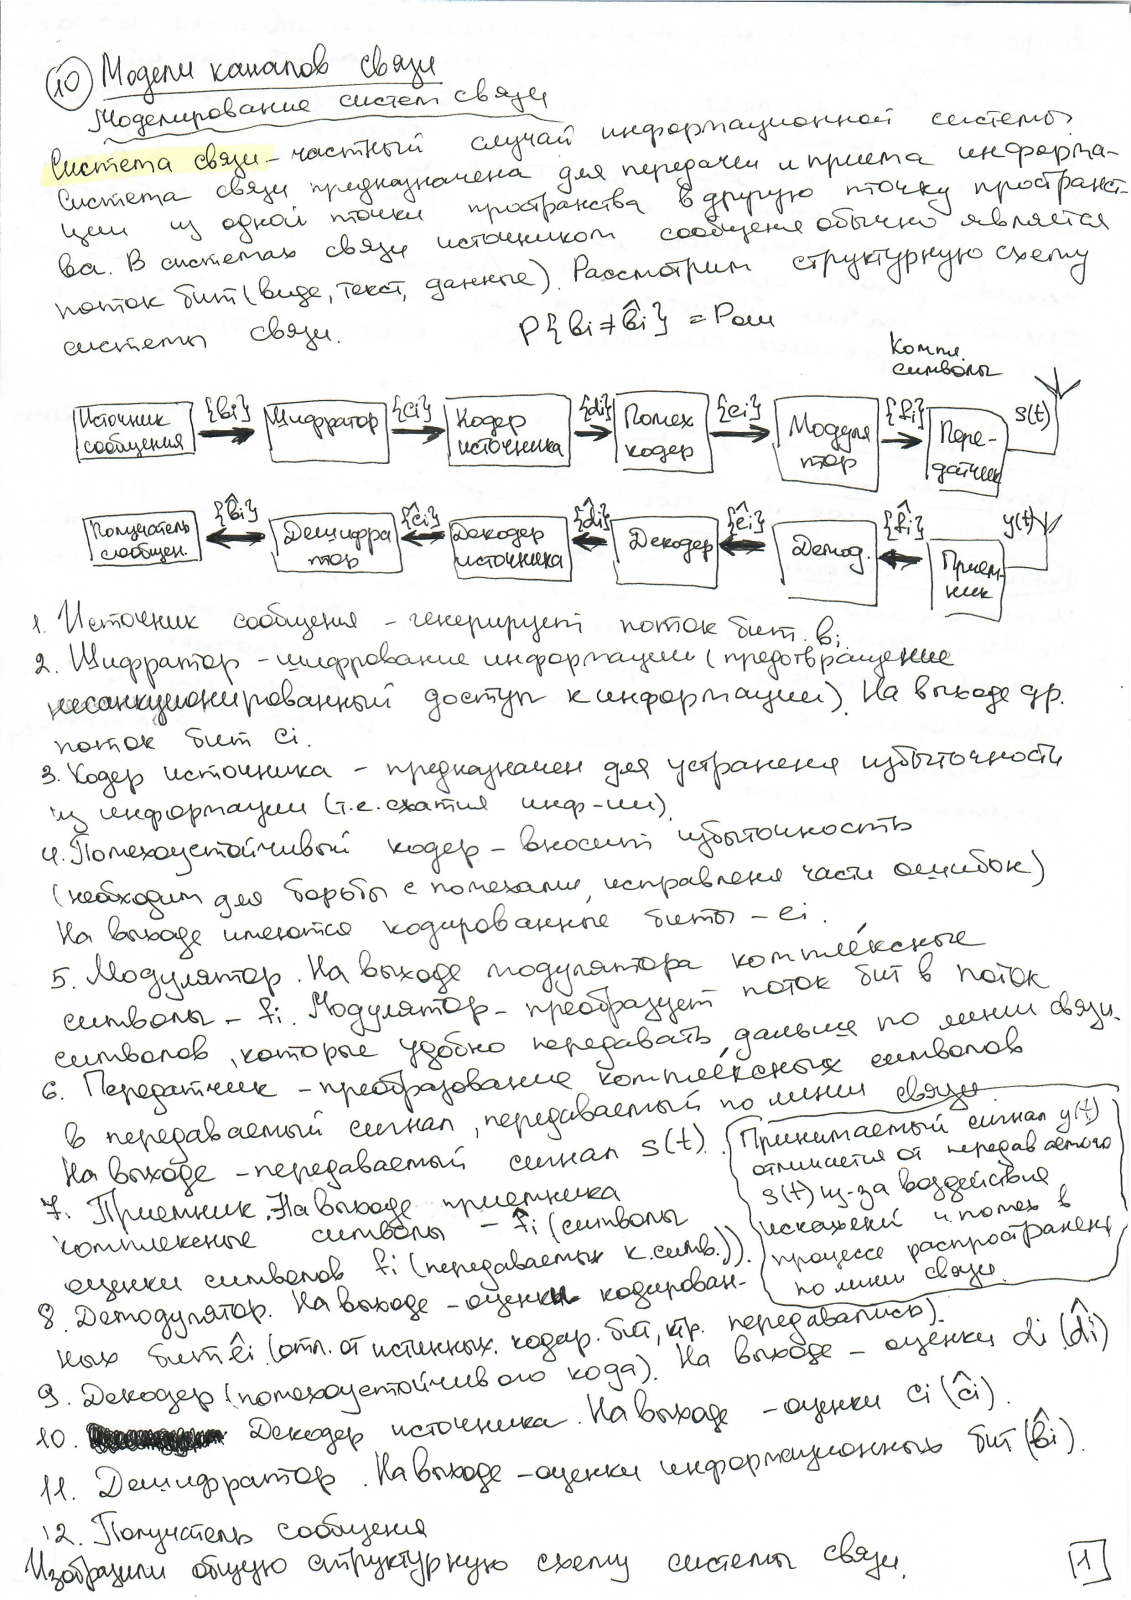 10 Модели каналов связи
Моделирование систем связи
Система связи – частный случай информационной системы.
Система связи предназначена для передачи и приема информа-
ции из одной точки пространства в другую точку пространст-
ва. В системах связи источником сообщения обычно является
поток бит (виде, текст, данные). Рассмотрим структурную схему
системы связи.
P{bi ≠ b̂i} = Pош
Компл.
символы
Источник сообщения {bi} Шифратор {ci} Кодер источника {di} Помех кодер {ei} Модулятор {fi} Пере-датчик s(t)
Получатель сообщен. {b̂i} Дешифратор {ĉi} Декодер источника {d̂i} Декодер {êi} Демод. {f̂i} Прием-ник y(t)
1. Источник сообщения – генерирует поток бит bi
2. Шифратор – шифрование информации (предотвращение
несанкционированный доступ к информации). На выходе др.
поток бит ci.
3. Кодер источника – предназначен для устранения избыточности
из информации (т.е. сжатия инф-ии)
4. Помехоустойчивый кодер – вносит избыточность
(необходим для борьбы с помехами, исправленя части ошибок)
На выходе имеются кодированные биты – ei.
5. Модулятор. На выходе модулятора комплексные
символы – fi. Модулятор – преобразует поток бит в поток
символов, которые удобно передавать дальше по линии связи.
6. Передатчик – преобразование комплексных символов
в передаваемый сигнал, передаваемый по линии связи
На выходе – передаваемый сигнал s(t).
Принимаемый сигнал y(t)
отличается от передаваемого
s(t) из-за воздействия
искажений и помех в
процессе распространен
по линии связи.
7. Приемник. На выходе приемника
комплексные символы – f̂i (символы
оценки символов fi (передаваемых к.симв.)).
8. Демодулятор. На выходе – оценки кодирован-
ных бит êi (отл. от истинных кодир. бит, ктр. передавались).
9. Декодер (помехоустойчивого кода). На выходе – оценки di (d̂i)
10. Декодер источника. На выходе – оценки ci (ĉi).
11. Дешифратор. На выходе – оценки информационных бит (b̂i).
12. Получатель сообщения
Изобразили общую структурную схему системы связи.
1